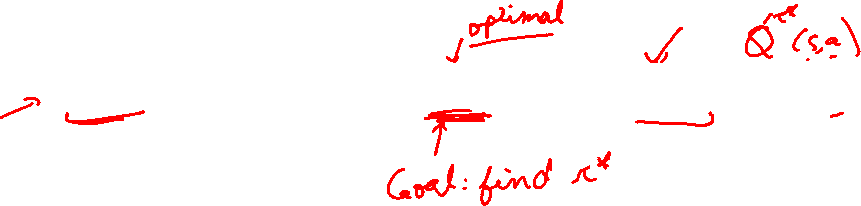 optimal
Q^π*(s,a)
Goal: find π*